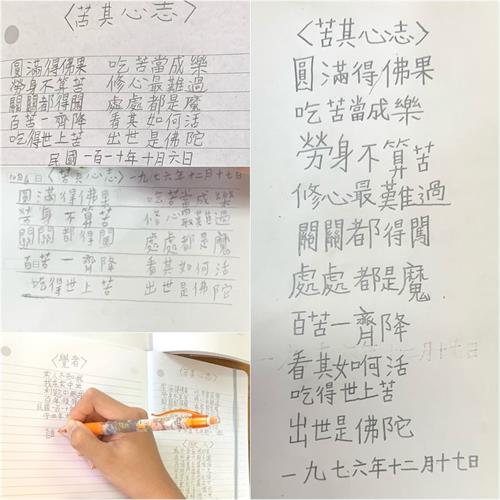 〈苦其心志〉
圓滿得佛果 吃苦當成樂
勞身不算苦 修心最難過
關關都得闖 處處都是魔
百苦一齊降 看其如何活
吃得世上苦 出世是佛陀
民國一百一十年十月六日
〈苦其心志〉一九七六年十二月十七日
圓滿得佛果 吃苦當成樂
勞身不算苦 修心最難過
關關都得闖 處處都是魔
百苦一齊降 看其如何活
吃得世上苦 出世是佛陀
〈覺者〉
〈苦其心志〉
〈苦其心志〉
圓滿得佛果
吃苦當成樂
勞身不算苦
修心最難過
關關都得闖
處處都是魔
百苦一齊降
看其如何活
吃得世上苦
出世是佛陀
一九七六年十二月十七日